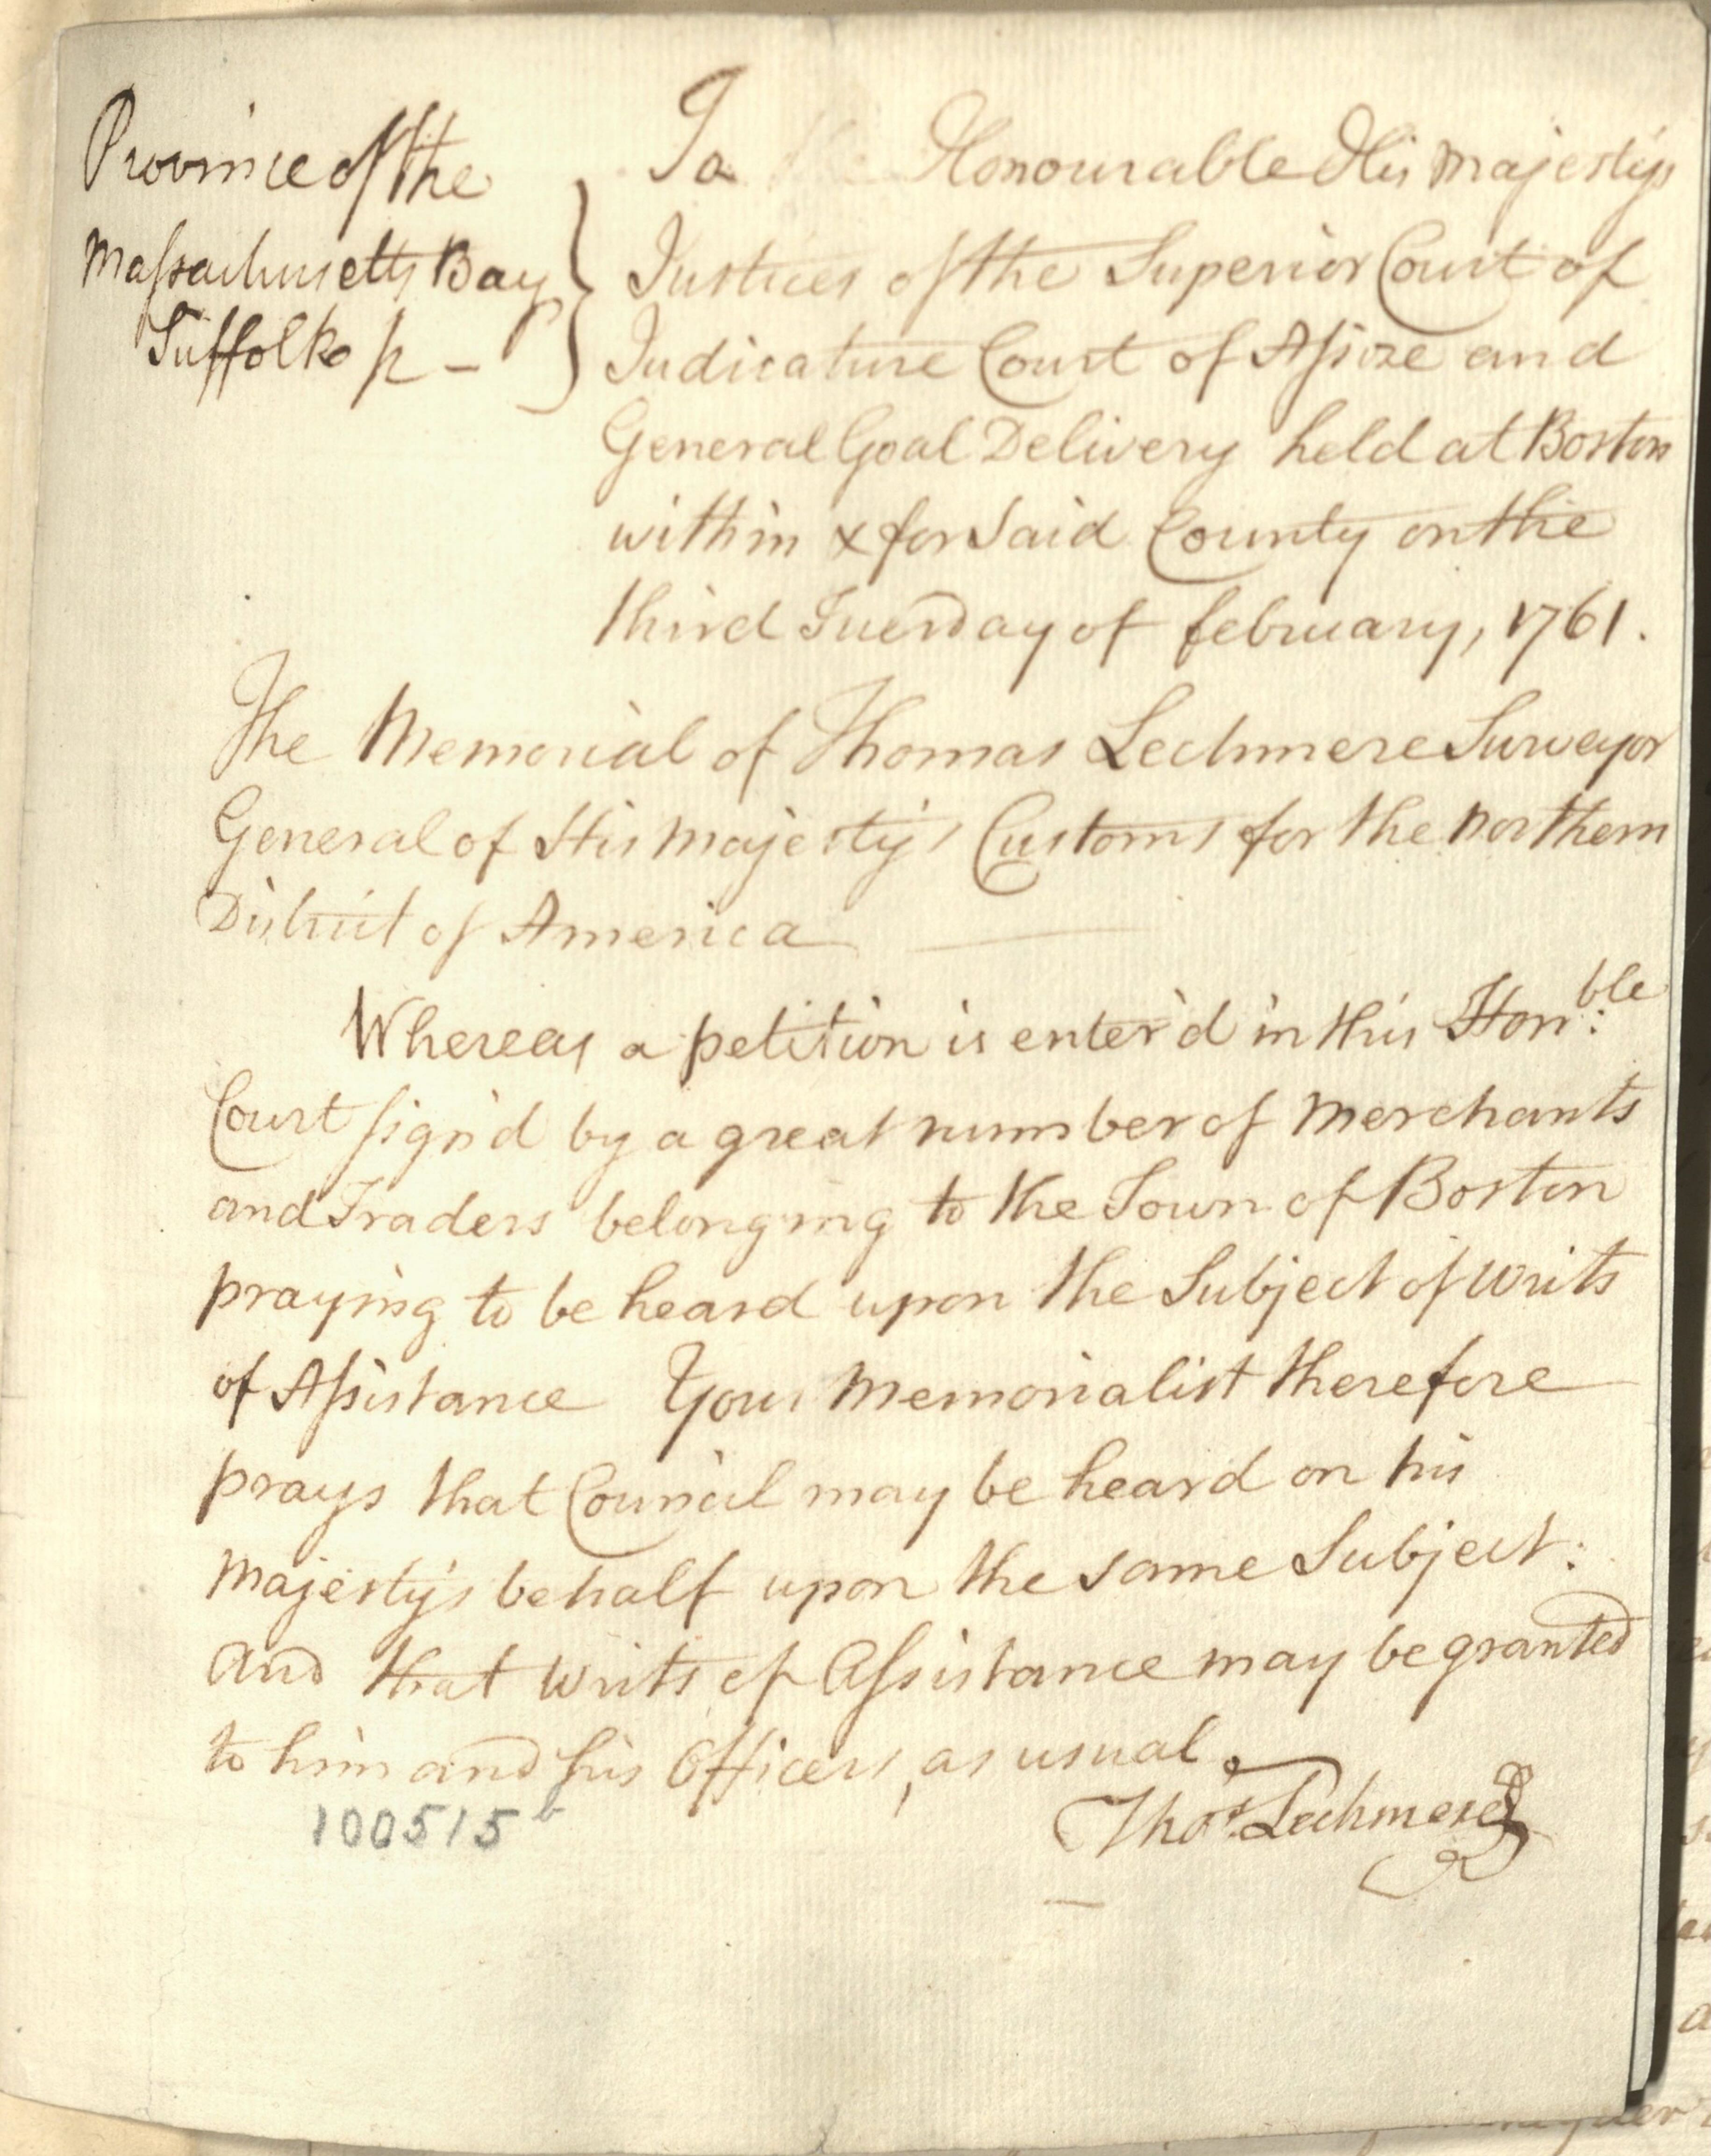 Province of the
Massachusetts Bay
Suffolk ſs –
To the Honourable His Majestys
Justices of the Superior Court of
Judicature Court of Assize and
General Goal Delivery held at Boston
within & for Said County on the
third Tuesday of february, 1761.
The Memorial of Thomas Lechmere Surveyor
General of His Majesty's Customs for the Northern
District of America
Whereas a petition is enter'd in this Hon:ble
Court sign'd by a great number of Merchants
and Traders belonging to the Town of Boston
praying to be heard upon the Subject of Writs
of Assistance Your Memorialist therefore
prays that Council may be heard on his
Majesty's behalf upon the same Subject:
And that Writs of Assistance may be granted
to him and his Officers, as usual.
Thos. Lechmere
100515b